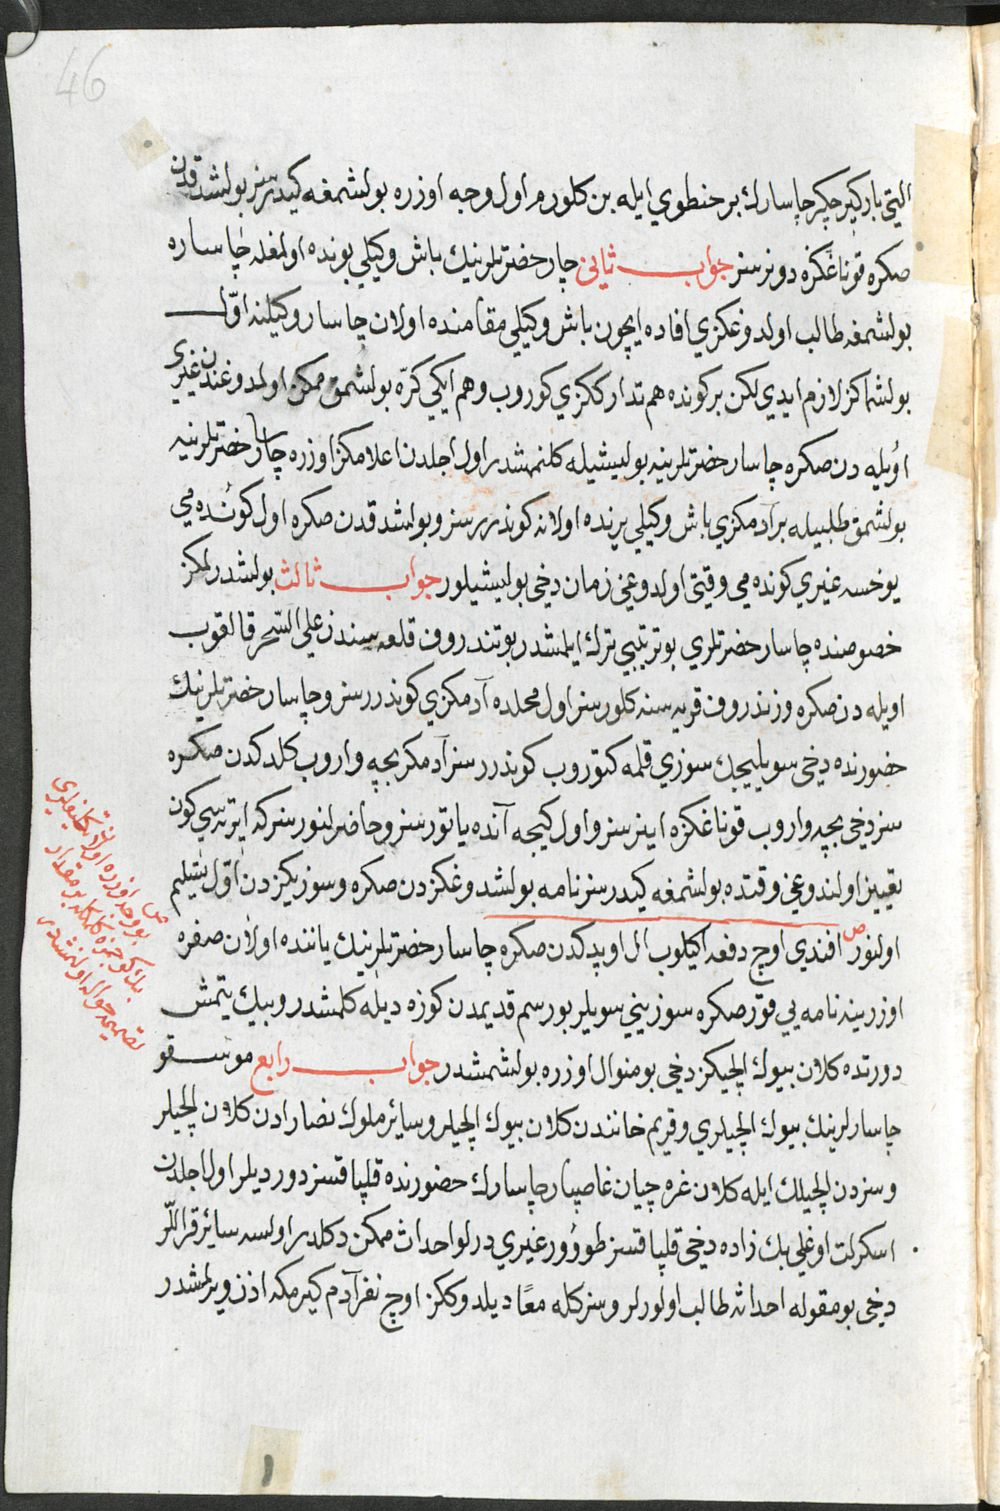 46
التى باركير چكر چاسارك بر خنطوى ايله بن كلورم اول وجه اوزره بولشمغه كيدرسز بولشدقدن
صكره قوناغكزه دونرسز جواب ثانى چار حضرتلرينك باش وكيلى بونده اولمغله چاساره
بولشمغه طالب اولدوغكزى افاده ايچون باش وكيلى مقامنده اولان چاسار وكيلنه اوّل
بولشماكز لازم ايدى لكن بر كونده هم تداركگزى كوروب وهم ايكى كرّه بولشمق ممكن اولمدوغندن غيرى
اويله دن صكره چاسار حضرتلرينه بوليشيله كلنمشدر اول اجلدن اعلامكز اوزره چاسار حضرتلرينه
بولشمق طلبيله بر آدمكزى باش وكيلى يرنده اولانه كوندررسز و بولشدقدن صكره اول كونده مى
يوخسه غيرى كونده مى وقيتى اولدوغى زمان دخى بوليشيلور جواب ثالث بولشدرلمكز
خصوصنده چاسار حضرتلرى بو ترتيبى ترك ايلمشدر بوتندروف قلعه سندن على السحر قالقوب
اويله دن صكره وزندروف قريه سنه كلورسز اول محلده آدمكزى كوندررسز و چاسار حضرتلرينك
حضورنده دخى سويليجك سوزى قلمه كتوروب كوندررسز آدمكز بچه واروب كلدكدن صكره
سز دخى بچه واروب قوناغكزه اينرسز و اول كيجه آنده ياتورسز و حاضرلنورسز كه ايرته سى كون
تعيين اولندوغى وقتده بولشمغه كيدرسز نامه بولشدوغكزدن صكره و سوزيكزدن اوّل تسليم
اولنور ص افندى اوچ دفعه اكيلوب ال اوپدكدن صكره چاسار حضرتلرينك ياننده اولان صفره
اوزرينه نامه يى قور صكره سوزينى سويلر بو رسم قديمدن كوزه ديله كلمشدر و بيك يتمش
دورتده كلان بيوك ايلچيكز دخى بو منوال اوزره بولشمشدر جواب رابع موسقو
چاسارلرينك بيوك ايلچيلرى و قريم خانندن كلان بيوك ايلچيلر و سائر ملوك نصارادن كلان ايلچيلر
و سزدن ايلچيلك ايله كلان غره چيان غاصپار چاسارك حضورنده قلپاقسز دورديلر اول اجلدن
اسكرلت اوغلى بك زاده دخى قلپاقسز طورور غيرى درلو احداث ممكن دكلدر اولسه سائر قراللر
دخى بو مقوله احداثه طالب اولورلر و سزكله معًا ديلدوككز اوچ نفر آدم كيرمكه اذن ويرلمشدر
ص
بو وجه اوزره اولان تكليفلرى